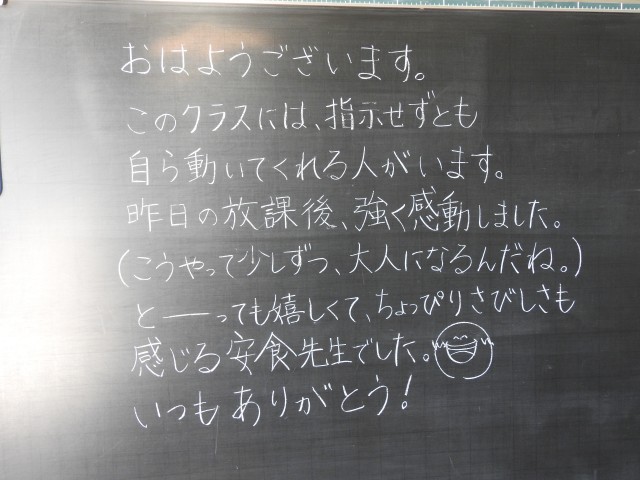 おはようございます。
このクラスには、指示せずとも
自ら動いてくれる人がいます。
昨日の放課後、強く感動しました。
(こうやって少しずつ、大人になるんだね。)
と──っても嬉しくて、ちょっぴりさびしさも
感じる安食先生でした。
いつもありがとう!